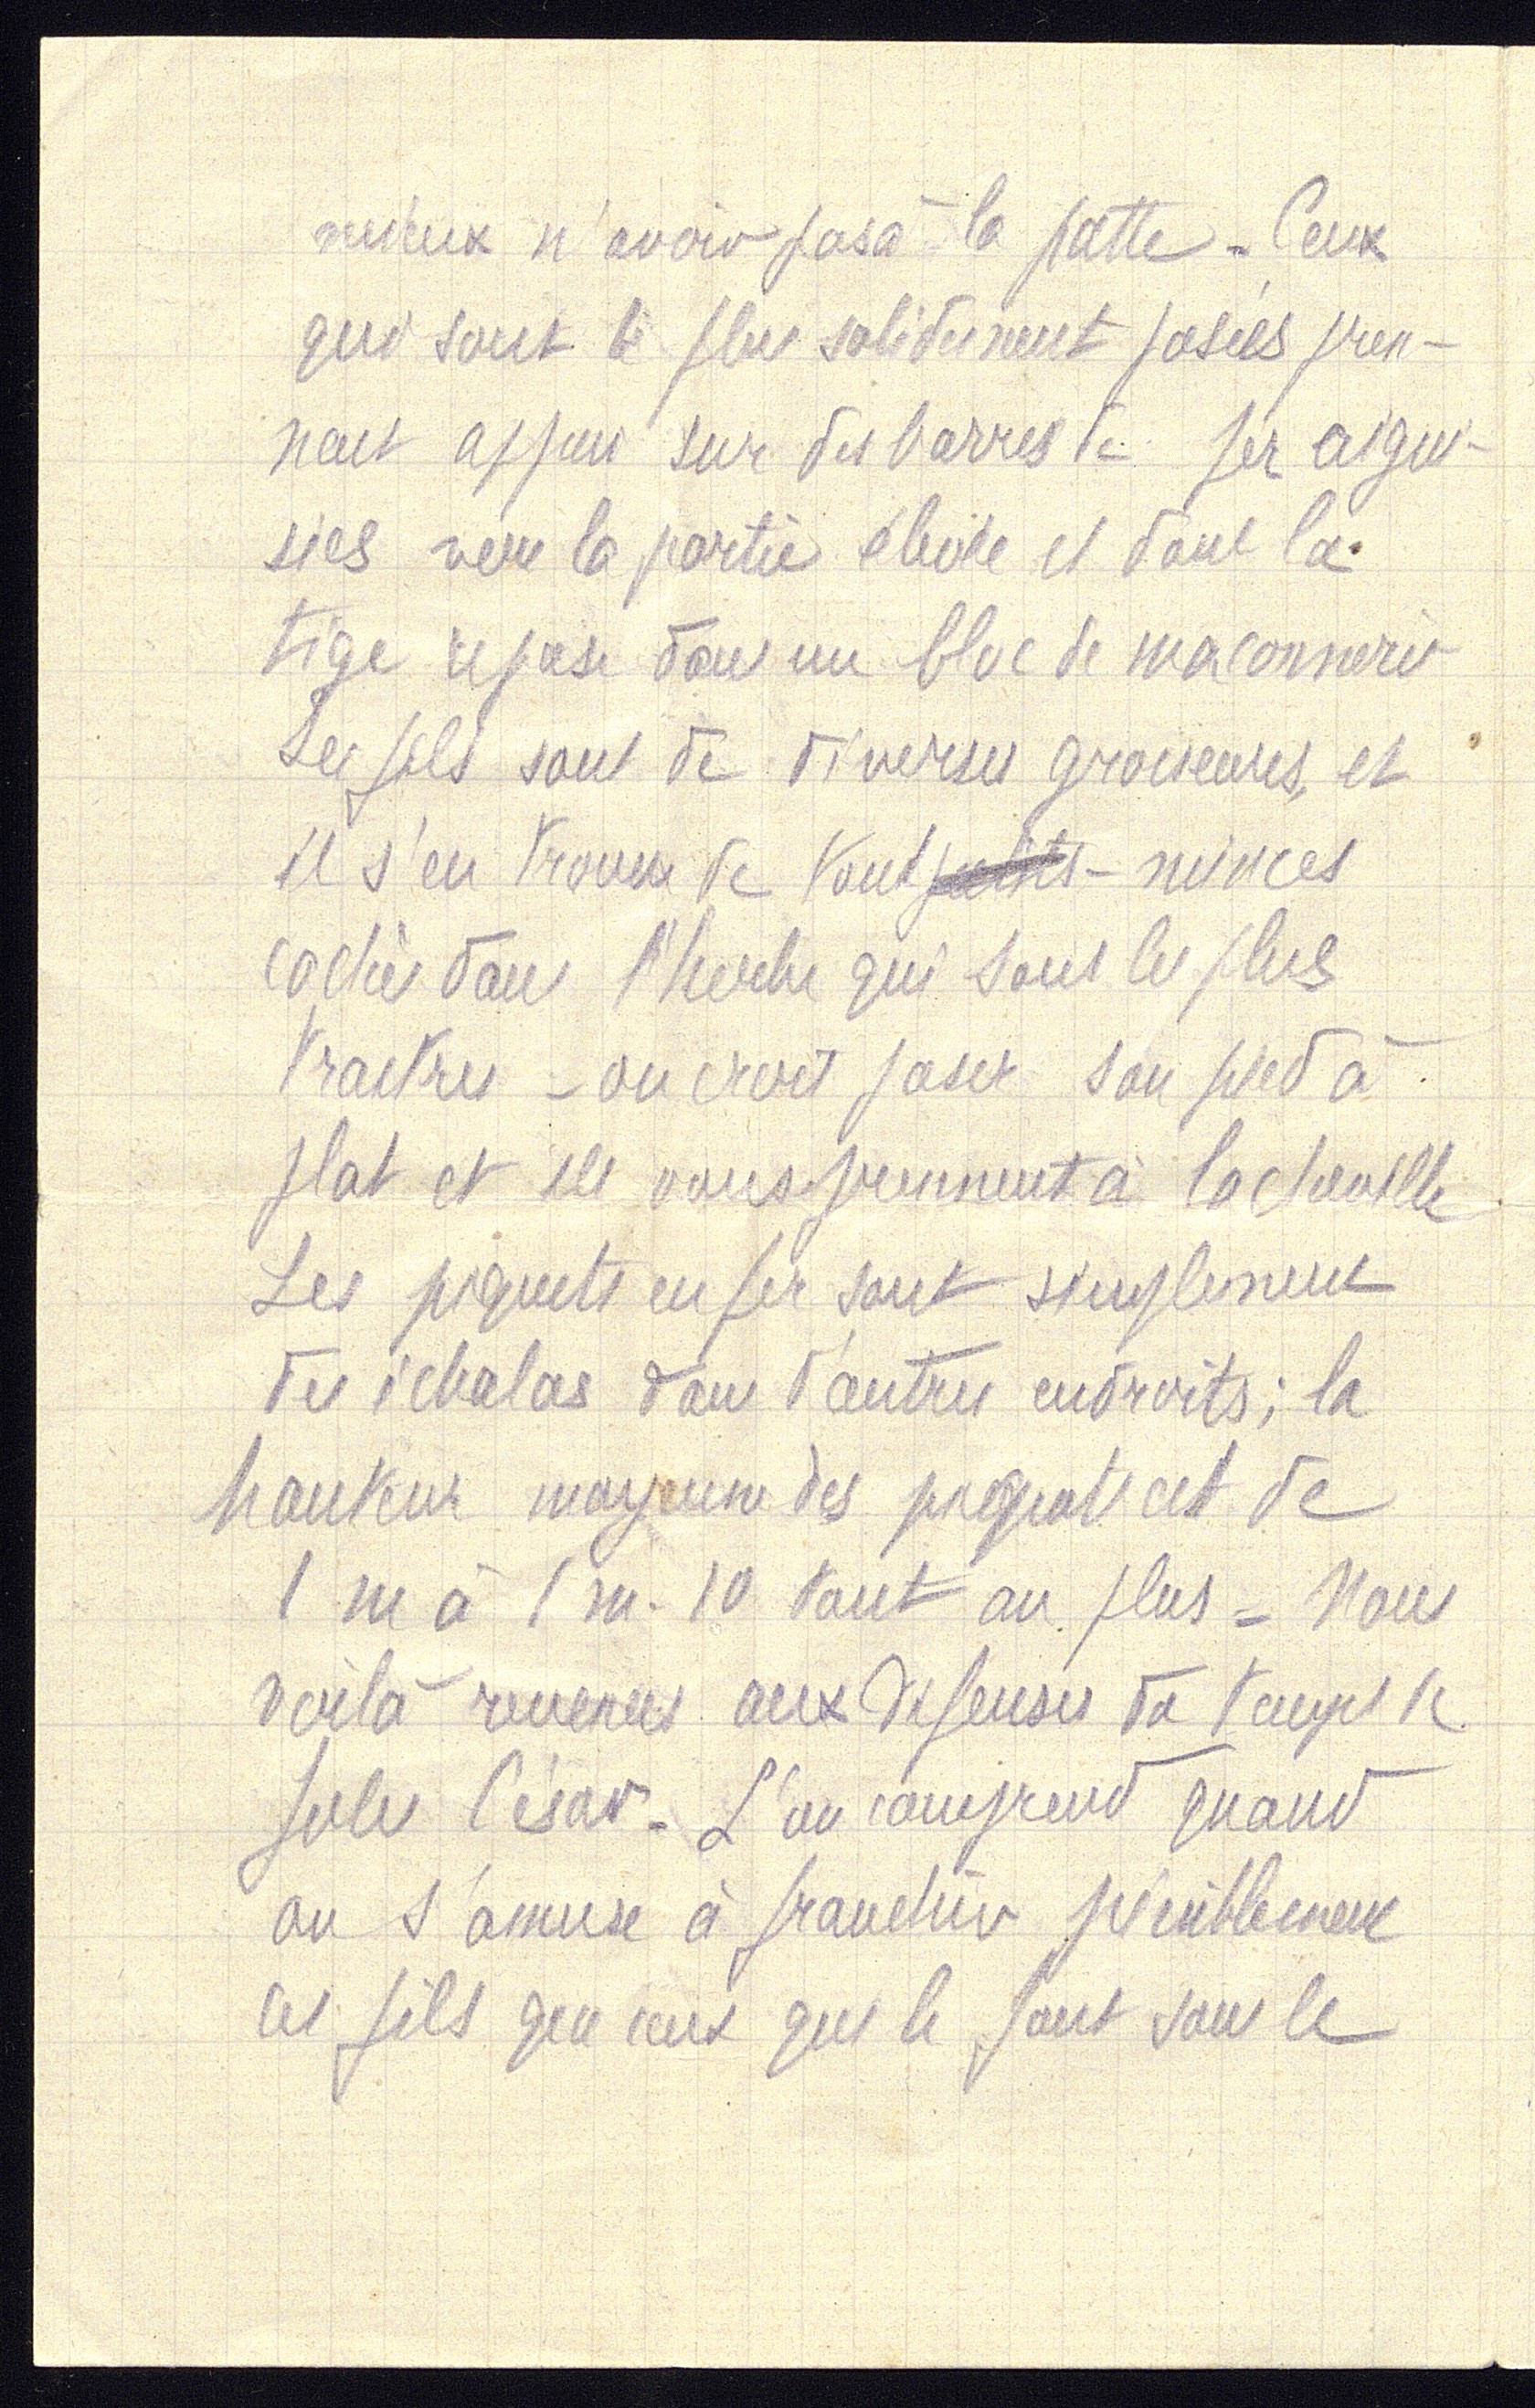 mieux n'avoir pas à la patte - Ceux
qui sont le plus solidement posés pren-
nent appui sur des barres de fer aigui-
sées vers la partie élevée et dont la
tige repose dans un bloc de maçonnerie
Les fils sont de diverses grosseurs, et
il s'en trouve de tout petits - minces
cachés dans l'herbe qui sont les plus
traitres - on croit poser son pied à
plat et ils vous prennent à la cheville
Les piquets en fer sont simplement
des échalas dans d'autres endroits ; la
hauteur moyenne des piquets est de
1 m à 1 m. 10 tout au plus = Nous
voilà revenus aux défenses du temps de
Jules César - L'on comprend quand
on s'amuse à franchir péniblement
ces fils que ceux qui le font sous le